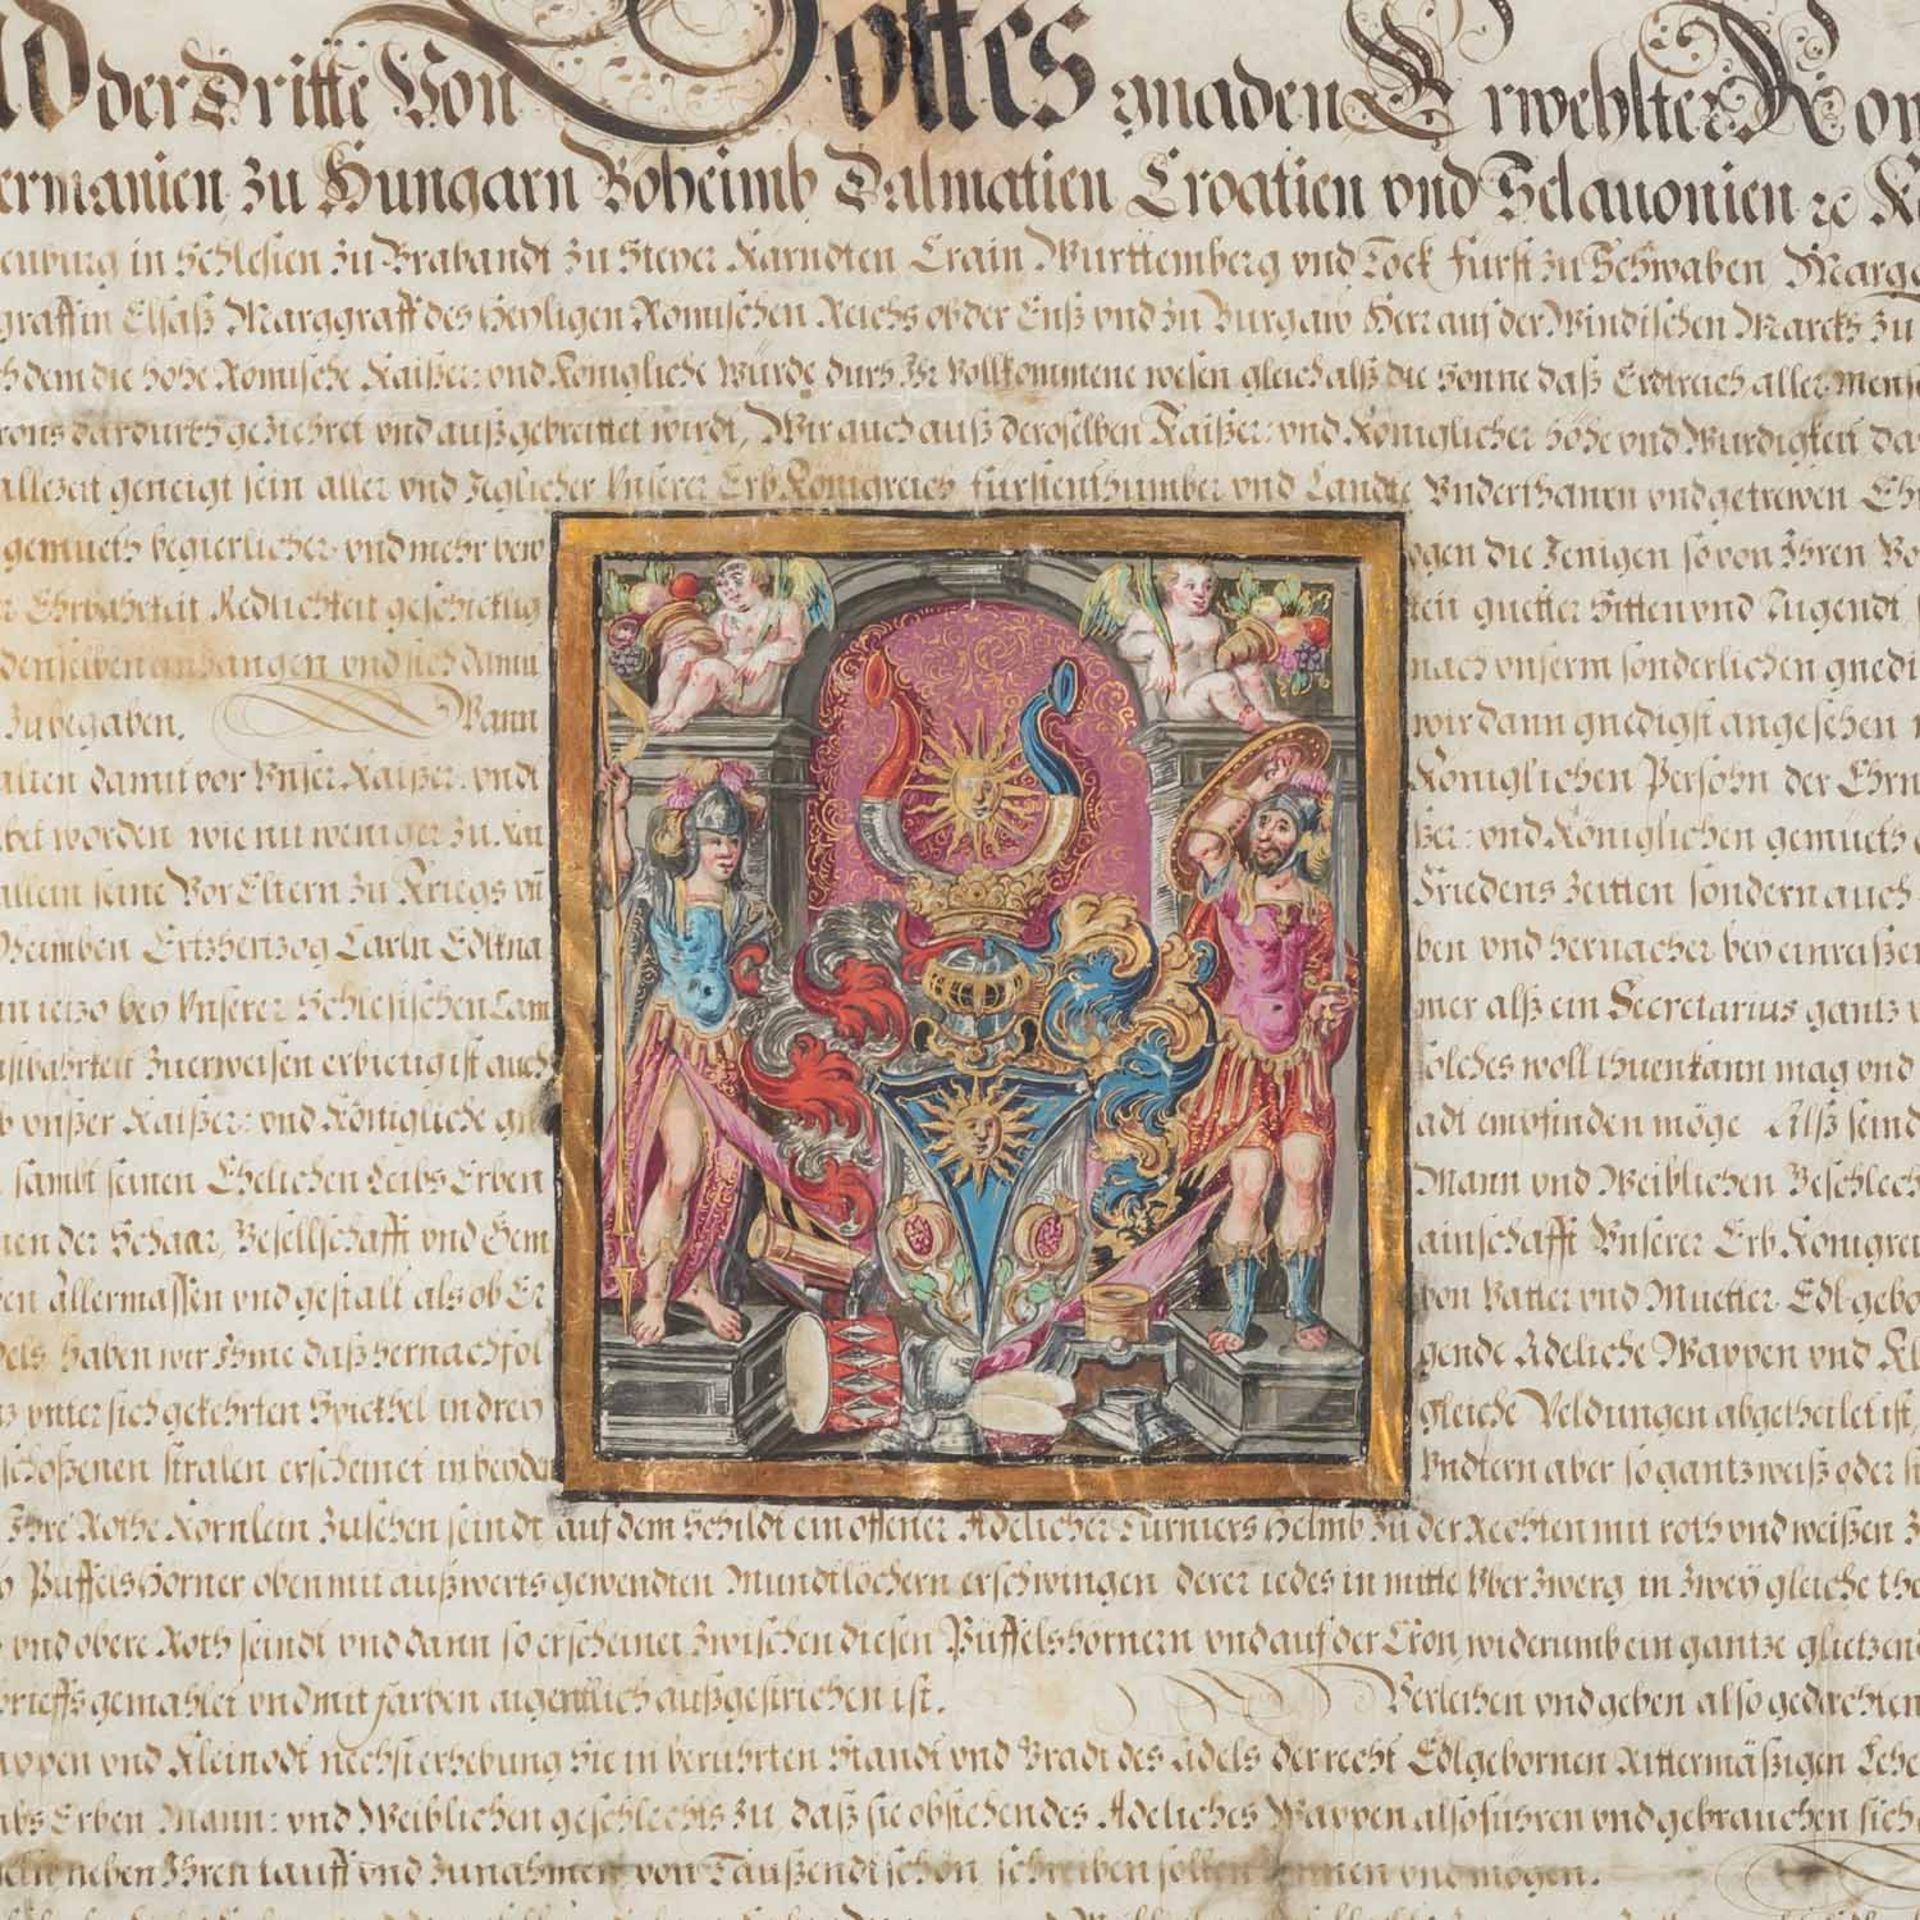 der Dritte Von Gottes gnaden Erwehlter Rom
ermanien zu Hungarn Boheimb Dalmatien Croatien vnd Sclauonien ꝛc
enburg in Schlesien zu Brabandt zu Steyer Kärndten Crain Württemberg vnd Tock Fürst zu Schwaben Margg
graff in Elsaß Marggraff des Heyligen Römischen Reichs ob der Enß vnd zu Burgaw Herr auf der Windischen Marckh zu
dem die hohe Römische Kaißer: vnd Königliche Würde durch Ihr Vollkommene wesen gleich alß die Sonne daß Erdreich aller mens
rons dardurch geziehret vnd außgebreittet wirdt, Wir auch auß deroselben Kaißer: vnd Königlicher höhe vnd Würdigkeit da
allezeit geneigt sein aller vnd Jeglicher Vnserer Erb Königreich fürstenthumber vnd Landte Vnderthanen vnd getrewen Eh
gemueth begierlicher vnd mehr bew ogen die Jenigen so von Ihren Vo
Ehrbahrkeit Redlichkeit geschickhlig keit guetter Sitten vnd Tugendt
denselben anhangen vnd sich damit nach vnserm sonderlichen gnedi
zu begaben. Wann wir dann gnedigst angesehen
alten damit vor Vnser Kaißer: vndt Königlichen Persohn der Ehrn
bet worden wie nit weniger zu ßer: vnd Königlichen gemueths
allein seine Vor Eltern zu Kriegs vn Friedens Zeitten sondern auch
Oheimben Ertzhertzog Carln Edlkna ben vnd hernacher bey einreißen
ietzo bey Vnserer Schlesischen Cam mer alß ein Secretarius gantz
bahrkeit zuerweisen erbietig ist auch solches woll thuen kann mag vnd
vnßer Kaißer: vnd Königliche gn adt empfinden möge Alß seind
sambt seinen Ehelichen Leibs Erben Mann vnd Weiblichen Geschlech
en der Schaar, Gesellschafft vnd Gem ainschafft Vnserer Erb Königrei
en Allermassen vnd gestalt als ob Er von Vatter vnd Muetter Edl gebo
dels haben wir Ihme daß hernachfol gende Adeliche Wappen vnd Kl
vnter sich gekehrten Spickhel in drey gleiche Veldungen abgetheilet ist,
schoßenen stralen erscheinet in beyden Vndtern aber so gantz weiß oder
Ihre Rothe Körnlein zusehen seindt auf dem Schildt ein offener Adelicher Turniers Helmb zu der Rechten mit roth vnd weißen
Püffelshörner oben mit außwerts gewendten Mundtlöchern erschwingen derer iedes in mitte Vber zwerg in zwey gleiche the
vnd obere Roth seindt vnd dann so erscheinet zwischen diesen Püffelshörnern vnd auf der Cron widerumb ein gantze glietzen
brieffs gemahlet vnd mit farben aigentlich außgestrichen ist. Verleihen vnd geben also gedachten
appen vnd Kleinodt nechst erhebung Sie in berührten Standt vnd Gradt des Adels der recht Edlgebornen Rittermäßigen Lehe
bs Erben Mann: vnd Weiblichen geschlechts zu, daß sie obstehendes Adeliches Wappen also führen vnd gebrauchen sich
neben Ihren tauff vnd zunahmen von Taußendtschön schreiben sollen können vnd mögen.